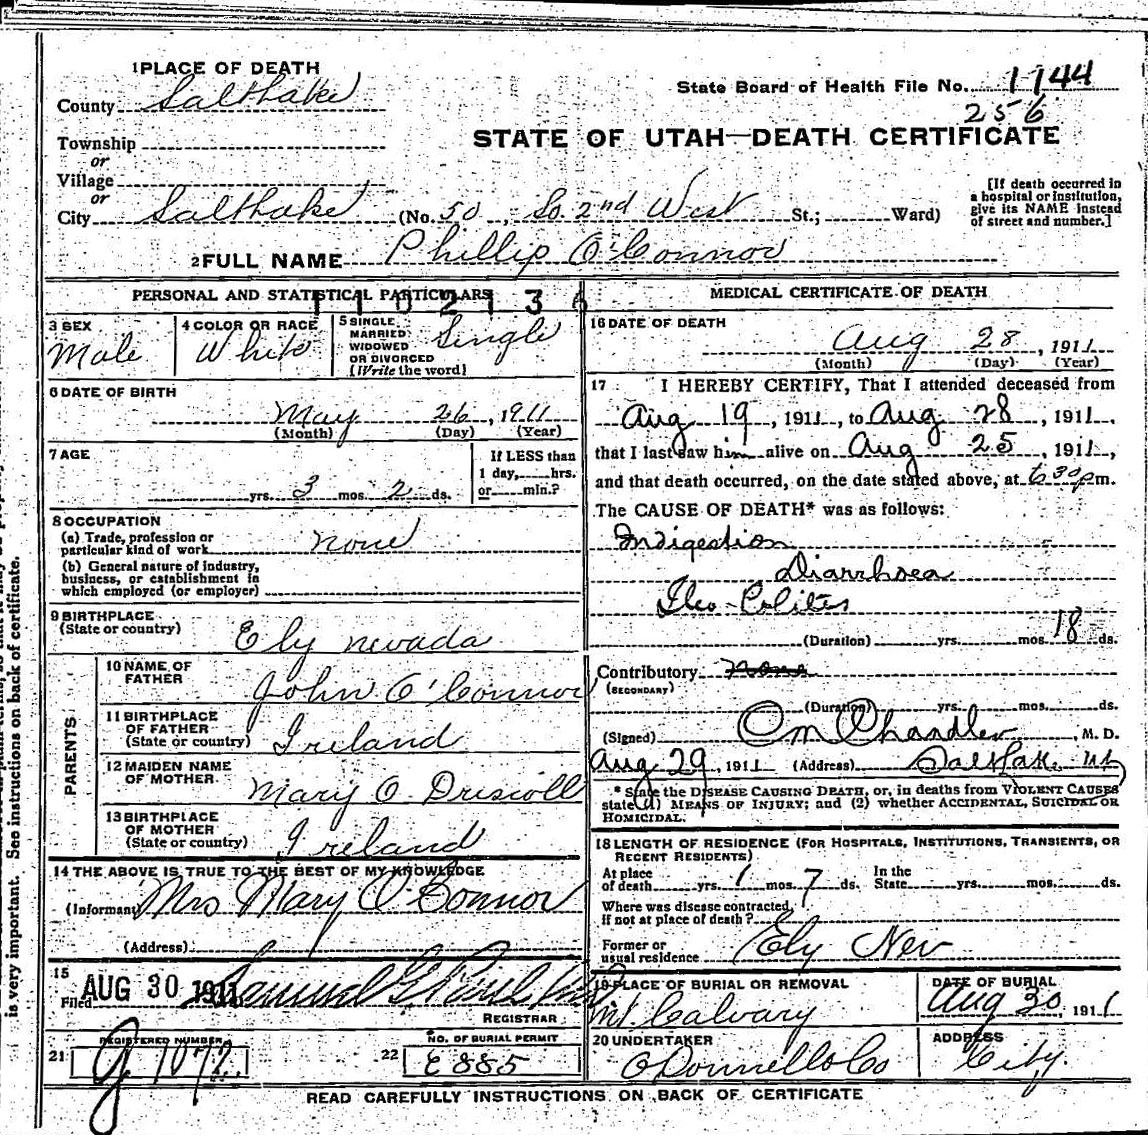 1 PLACE OF DEATH
County Salt Lake
State Board of Health File No. 1744
256
STATE OF UTAH—DEATH CERTIFICATE
Township
or
Village
or
City Salt Lake (No. 50, So. 2nd West St.; Ward)
[If death occurred in
a hospital or institution,
give its NAME instead
of street and number.]
2 FULL NAME Phillip O'Connor
PERSONAL AND STATISTICAL PARTICULARS
1102136
3 SEX
Male
4 COLOR OR RACE
White
5 SINGLE,
MARRIED,
WIDOWED
OR DIVORCED
(Write the word)
Single
6 DATE OF BIRTH
May 26, 1911
(Month) (Day) (Year)
7 AGE
yrs. 3 mos. 2 ds.
If LESS than
1 day, hrs.
or min.?
8 OCCUPATION
(a) Trade, profession or
particular kind of work none
(b) General nature of industry,
business, or establishment in
which employed (or employer)
9 BIRTHPLACE
(State or country)
Ely nevada
PARENTS
10 NAME OF
FATHER
John O'Connor
11 BIRTHPLACE
OF FATHER
(State or country) Ireland
12 MAIDEN NAME
OF MOTHER
Mary O. Driscoll
13 BIRTHPLACE
OF MOTHER
(State or country) Ireland
14 THE ABOVE IS TRUE TO THE BEST OF MY KNOWLEDGE
(Informant) Mrs Mary O'Connor
(Address)
15
Filed AUG 30 1911 Samuel G. Paul
REGISTRAR
REGISTERED NUMBER
21 G 1072
NO. OF BURIAL PERMIT
22 E 885
MEDICAL CERTIFICATE OF DEATH
16 DATE OF DEATH
Aug 28, 1911
(Month) (Day) (Year)
17 I HEREBY CERTIFY, That I attended deceased from
Aug 19, 1911, to Aug 28, 1911,
that I last saw him alive on Aug 25, 1911,
and that death occurred, on the date stated above, at 630pm.
The CAUSE OF DEATH* was as follows:
Indigestion
Diarrhoea
Ileo-Colites
(Duration) yrs. mos. 18 ds.
Contributory none
(SECONDARY)
(Duration) yrs. mos. ds.
(Signed) O M Chandler, M. D.
Aug 29, 1911 (Address) Salt Lake Ut
* State the DISEASE CAUSING DEATH, or, in deaths from VIOLENT CAUSES
state (1) MEANS OF INJURY; and (2) whether ACCIDENTAL, SUICIDAL OR
HOMICIDAL.
18 LENGTH OF RESIDENCE (FOR HOSPITALS, INSTITUTIONS, TRANSIENTS, OR
RECENT RESIDENTS)
At place
of death yrs. 1 mos. 7 ds.
In the
State yrs. mos. ds.
Where was disease contracted,
if not at place of death?
Former or
usual residence Ely Nev
19 PLACE OF BURIAL OR REMOVAL
Mt. Calvary
DATE OF BURIAL
Aug 30, 1911
20 UNDERTAKER
O'Donnell & Co
ADDRESS
City.
READ CAREFULLY INSTRUCTIONS ON BACK OF CERTIFICATE
is very important. See instructions on back of certificate.